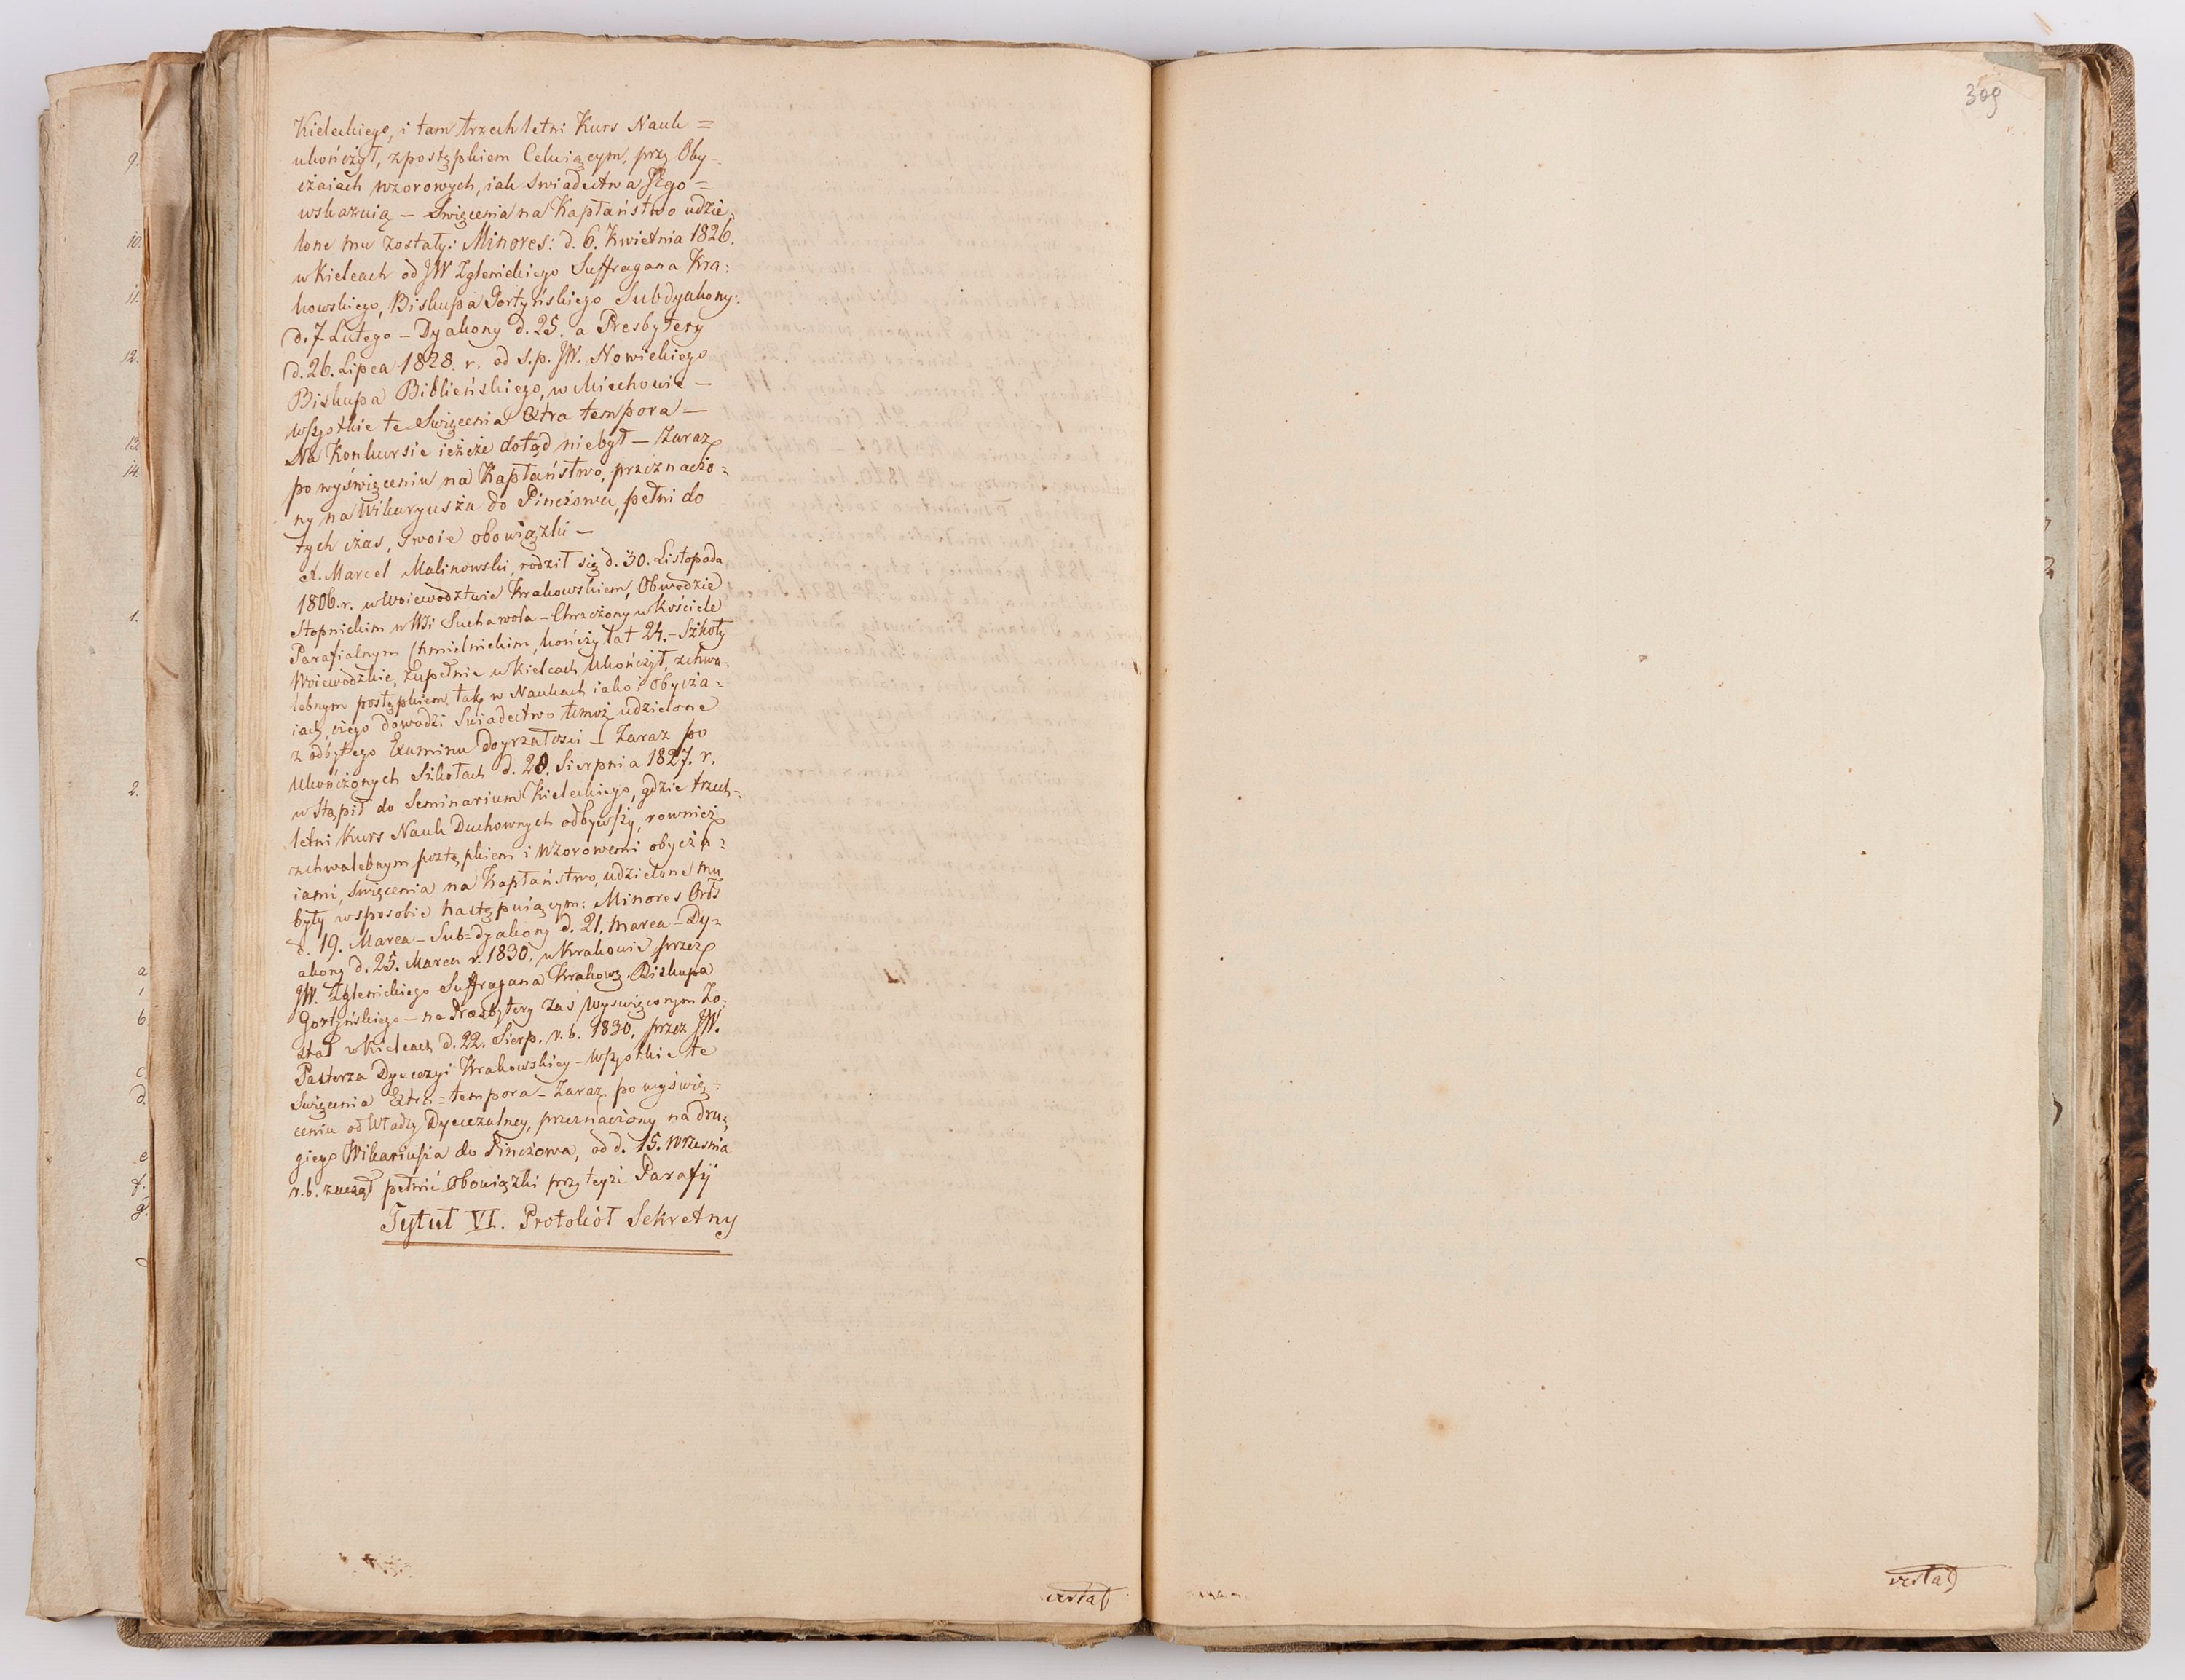 Kieleckiego, i tam trzechletni Kurs Nauk =
ukończył, z postępkiem Celuiącym, przy Oby-
czaiach wzorowych, iak swiadectwa Jego =
wskazuią — Swięcenia na Kapłaństwo udzie,
lone mu zostały: Minores: d. 6. Kwietnia 1826.
w Kielcach od JW Zglenickiego Suffragana Kra:
kowskiego, Biskupa Gortyńskiego Subdyakony:
d. 7 Lutego — Dyakony d. 25. a Presbytery
d. 26. Lipca 1828. r. od s.p. JW. Nowickiego
Biskupa Biblieńskiego, w Miechowie —
wszystkie te Swięcenia Extra tempora —
Na Konkursie ieżcże dotąd niebył — Zaraz
po wyświęceniu na Kapłaństwo, przeznaczo =
ny na Wikaryusza do Pinczowa, pełni do
tych czas, swoie obowiązki —
X. Marcel Malinowski, rodził się d. 30. Listopada
1806. r. w Woiewodztwie Krakowskiem, Obwodzie
Stopnickim w Wsi Suchawola — Chrzczony w Kościele
Parafialnym Chmielnickim, kończy lat 24. — Szkoły
Woiewodzkie, zupełnie w Kielcach Ukończył, z chwa-
lebnym postępkiem, tak w Naukach iako i Obycza =
iach, czego dowodzi Swiadectwo temuż udzielone
z odbytego Examinu Doyrzałosci — Zaraz po
Ukończonych Szkołach d. 28. Sierpnia 1827. r.
wstąpił do Seminarium Kieleckiego, gdzie trzech =
letni Kurs Nauk Duchownych odbywszy, rownież
z chwalebnym postępkiem i Wzorowemi obycza =
iami, swięcenia na Kapłaństwo, udzielone mu
były w sposobie następuiącym: Minores Ords
d. 19. Marca — Sub = dyakony d. 21. Marca — Dy =
akony d. 25. Marca r. 1830. w Krakowie przez
JW. Zglenickiego Suffragana Krakows. Biskupa
Gortyńskiego — na Presbytery zaś wyswięconym Zo,
stał w Kielcach d. 22. Sierp. r. b. 1830. przez JW.
Pasterza Dyecezyi Krakowskiey — wszystkie te
Swięcenia Extra = tempora — Zaraz po wyświę =
ceniu od Władzy Dyecezalney, przeznaczony na dru,
giego Wikariusza do Pinczowa, od d. 15. Września
r. b. zaczął pełnić Obowiązki przy teyże Parafij
Tytuł VI. Protokół Sekretny
vertat
309
vertat
9.
10.
11.
12.
13.
14.
1.
2.
a
b
c
d.
e
f.
g.